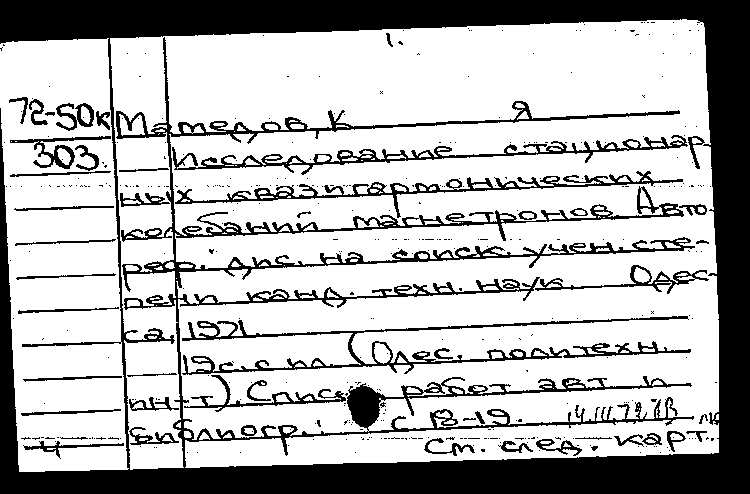 1.
72-50к Мамедов, К Я
303. Исследование стационар
ных квазигармонических
колебаний магнетронов Авто-
реф. дис. на соиск. учен. сте-
пени канд. техн. наук. Одес-
са, 1971.
19 с. с ил. (Одес. политехн.
ин-т). Список работ авт и
библиогр.: с 18-19. 14.III.72
4 См. след. карт.